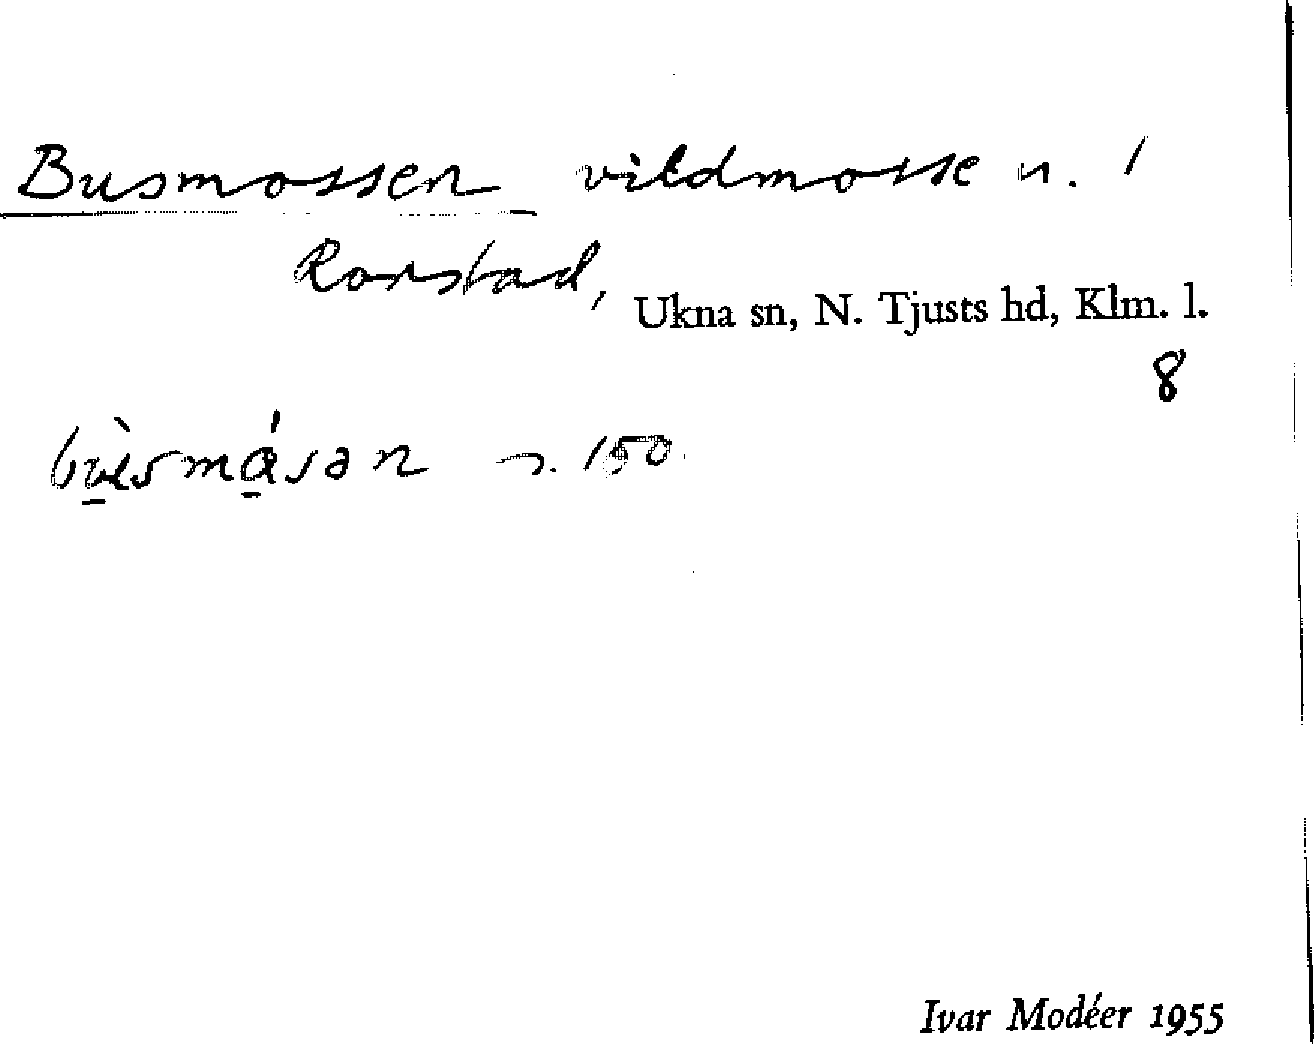 Busmossen vildmosse n. 1
Rorstad,
Ukna sn, N. Tjusts hd, Klm. l.
8
s. 150
Ivar Modéer 1955